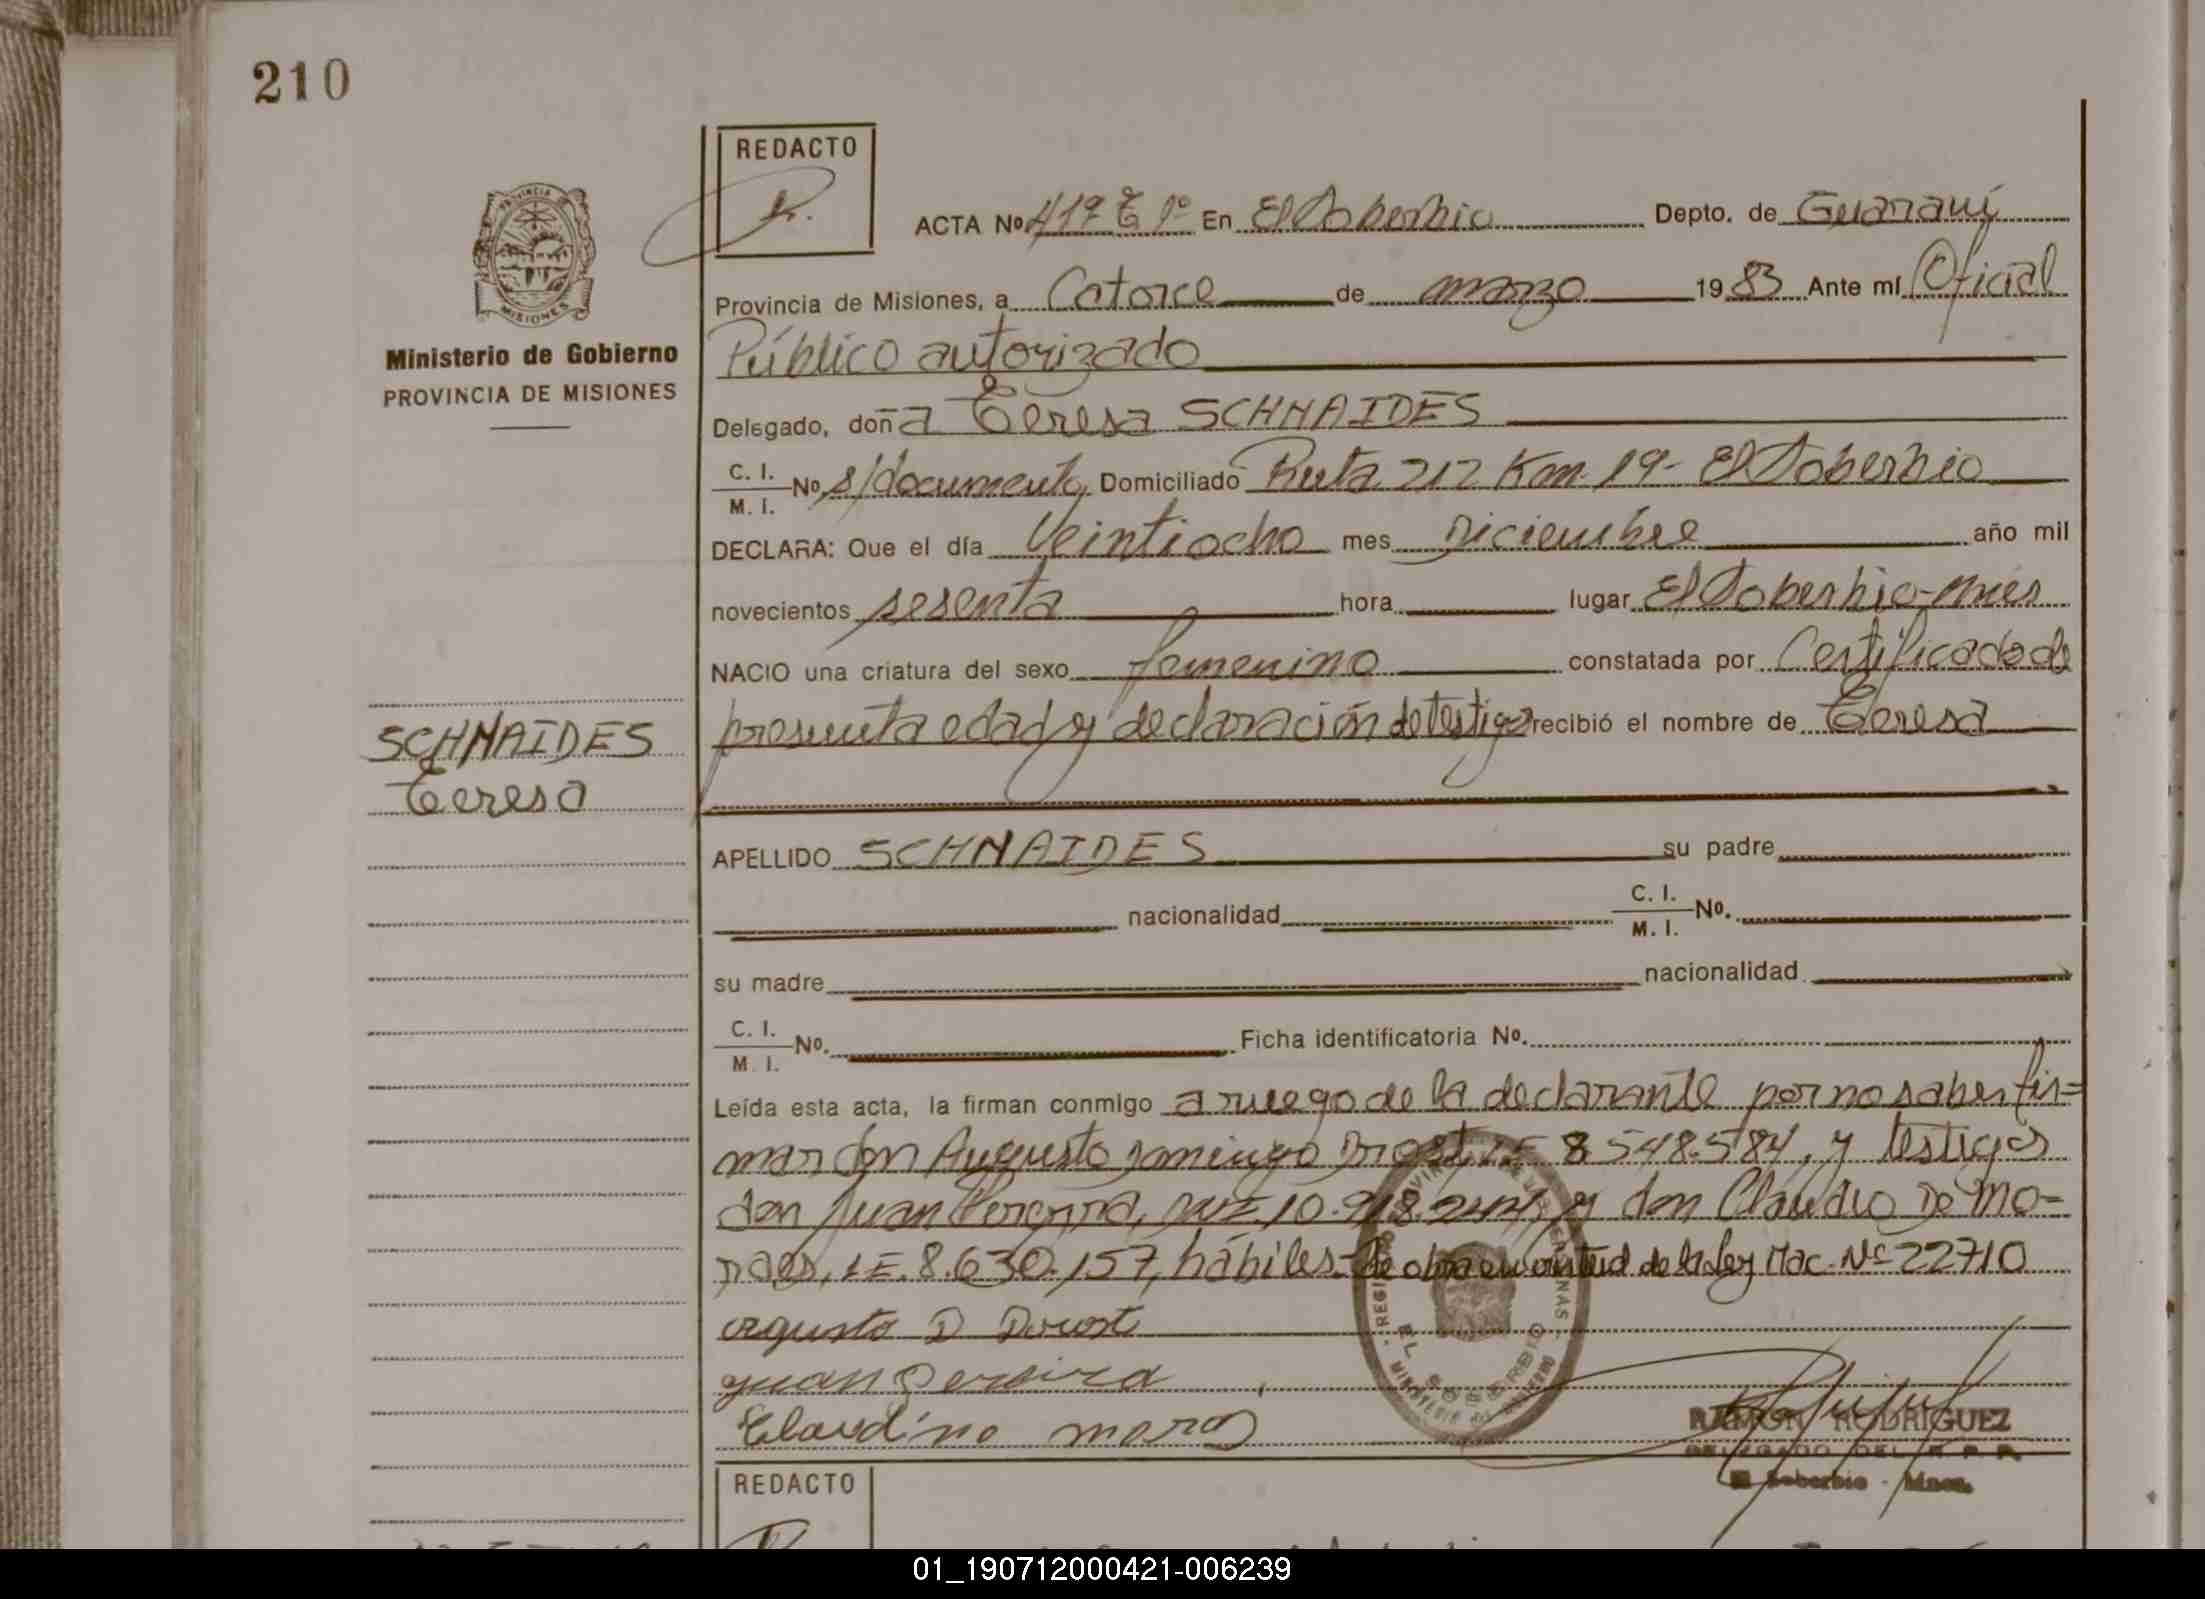 210
REDACTO
ACTA Nº 419 T 1º En El Soberbio Depto. de Guaraní
Provincia de Misiones, a Catorce de marzo 1983 Ante mí Oficial
Ministerio de Gobierno
PROVINCIA DE MISIONES
Público autorizado
Delegado, doña Teresa SCHNAIDES
C. I.
M. I. Nº s/documento, Domiciliado Ruta 212 Km. 19- El Soberbio
DECLARA: Que el día Veintiocho mes Diciembre año mil
novecientos sesenta hora lugar El Soberbio-Mnes
NACIO una criatura del sexo femenino constatada por Certificado de
presunta edad y declaración de testigo recibió el nombre de Teresa
SCHNAIDES
Teresa
APELLIDO SCHNAIDES su padre
nacionalidad C. I.
M. I. Nº.
su madre nacionalidad
C. I.
M. I. Nº. Ficha identificatoria Nº.
Leída esta acta, la firman conmigo a ruego de la declarante por no saber fir=
mar don Augusto Domingo LE 8.548.584, y testigos
don Juan 10.918.242, y don Claudio De Mo=
raes, LE. 8.630.157, hábiles. de la ley Nac. Nº 22710
agusto D
juan pereira
Claudino
MISIONES
EL SOBERBIO
RAMON RODRIGUEZ
DELEGADO DEL R. P. P.
El Soberbio - Mnes.
REDACTO
01_190712000421-006239